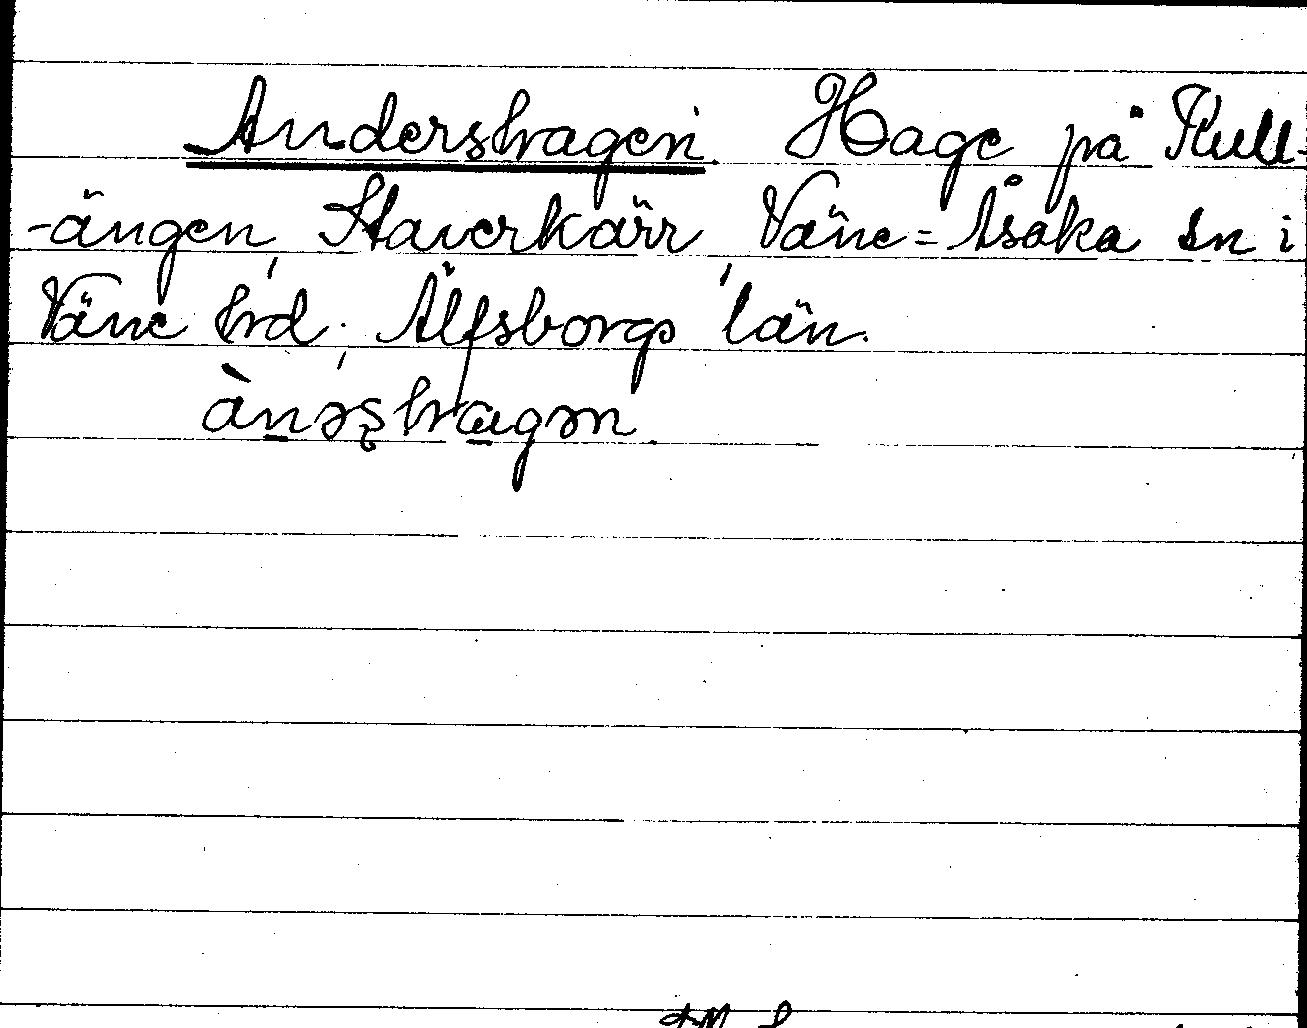 Andershagen. Hage på Kull-
-ängen, Staverkärr, Väne=Åsaka sn i
Väne hrd, Älfsborgs län.
ànəʂhagən.